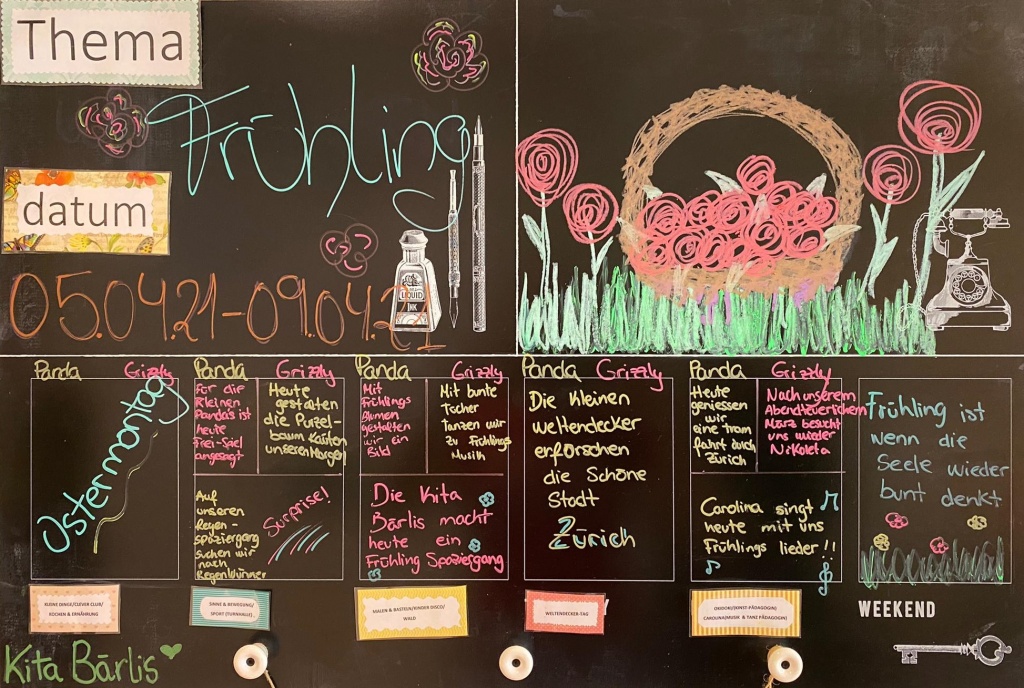 Thema
Frühling
datum
05.04.21-09.04.21
LIQUID
INK
Panda Grizzly
Ostermontag
Panda Grizzly
Für die
Kleinen
Panda's ist
heute
Frei-Spiel
angesagt
Heute
gestalten
die Purzel-
baum Kasten
unseren Morgen
Auf
unseren
Regen-
spaziergang
suchen wir
nach
Regenwürmer
Surprise!
Panda Grizzly
Mit
Frühlings
Blumen
gestalten
wir ein
Bild
Mit bunte
Tücher
Tanzen wir
zu Frühlings
Musik
Die Kita
Bärlis macht
heute ein
Frühling Spaziergang
Panda Grizzly
Die Kleinen
weltendecker
erforschen
die Schöne
Stadt
Zürich
Panda Grizzly
Heute
geniessen
wir
eine tram
fahrt durch
Zürich
Nach unserem
Abendteuerlichem
März besucht
uns wieder
Nikoleta
Carolina singt
heute mit uns
Frühlings lieder!!
Frühling ist
wenn die
Seele wieder
bunt denkt
KLEINE DINGE/CLEVER CLUB/
KOCHEN & ERNÄHRUNG
SINNE & BEWEGUNG/
SPORT (TURNHALLE)
MALEN & BASTELN/KINDER DISCO/
WALD
WELTENDECKER-TAG
OKIDOKI(KUNST-PÄDAGOGIN)
CAROLINA(MUSIK & TANZ PÄDAGOGIN)
WEEKEND
Kita Bärlis